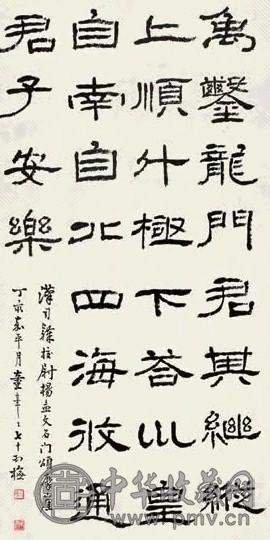 禹鑿龍門君其繼縱
上順斗極下答巛皇
自南自北四海攸通
君子安樂
漢司隸校尉楊孟文石門頌摩崖
丁亥嘉平月
中华收藏网
www.pmv.cn